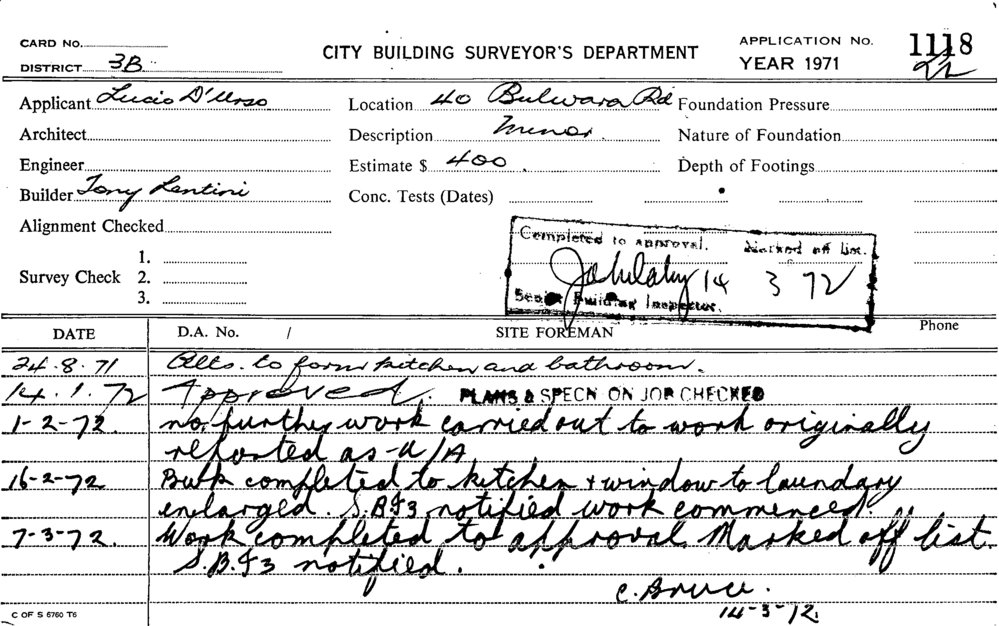 CARD No.
DISTRICT 3B
CITY BUILDING SURVEYOR'S DEPARTMENT
APPLICATION No. 1118
YEAR 1971
Applicant Lucio D'Urso
Location 40 Bulwara Rd
Foundation Pressure
Architect
Description Minor
Nature of Foundation
Engineer
Estimate $ 400
Depth of Footings
Builder Tony Lentini
Conc. Tests (Dates)
Alignment Checked
Completed to approval. Marked off list.
14 3 72
Senior Building Inspector.
Survey Check
1.
2.
3.
DATE D.A. No. / SITE FOREMAN Phone
24.8.71 Alts. to form kitchen and bathroom.
14.1.72 Approved. PLANS & SPECN ON JOB CHECKED
1-2-72. no further work carried out to work originally
reported as - U/A
16-2-72 Bulk completed to kitchen + window to laundary
enlarged. S.B.I3 notified work commenced
7-3-72. Work completed to approval. Marked off list.
S.B.I3 notified.
C. Bruce.
14-3-72.
C OF S 6760 T6